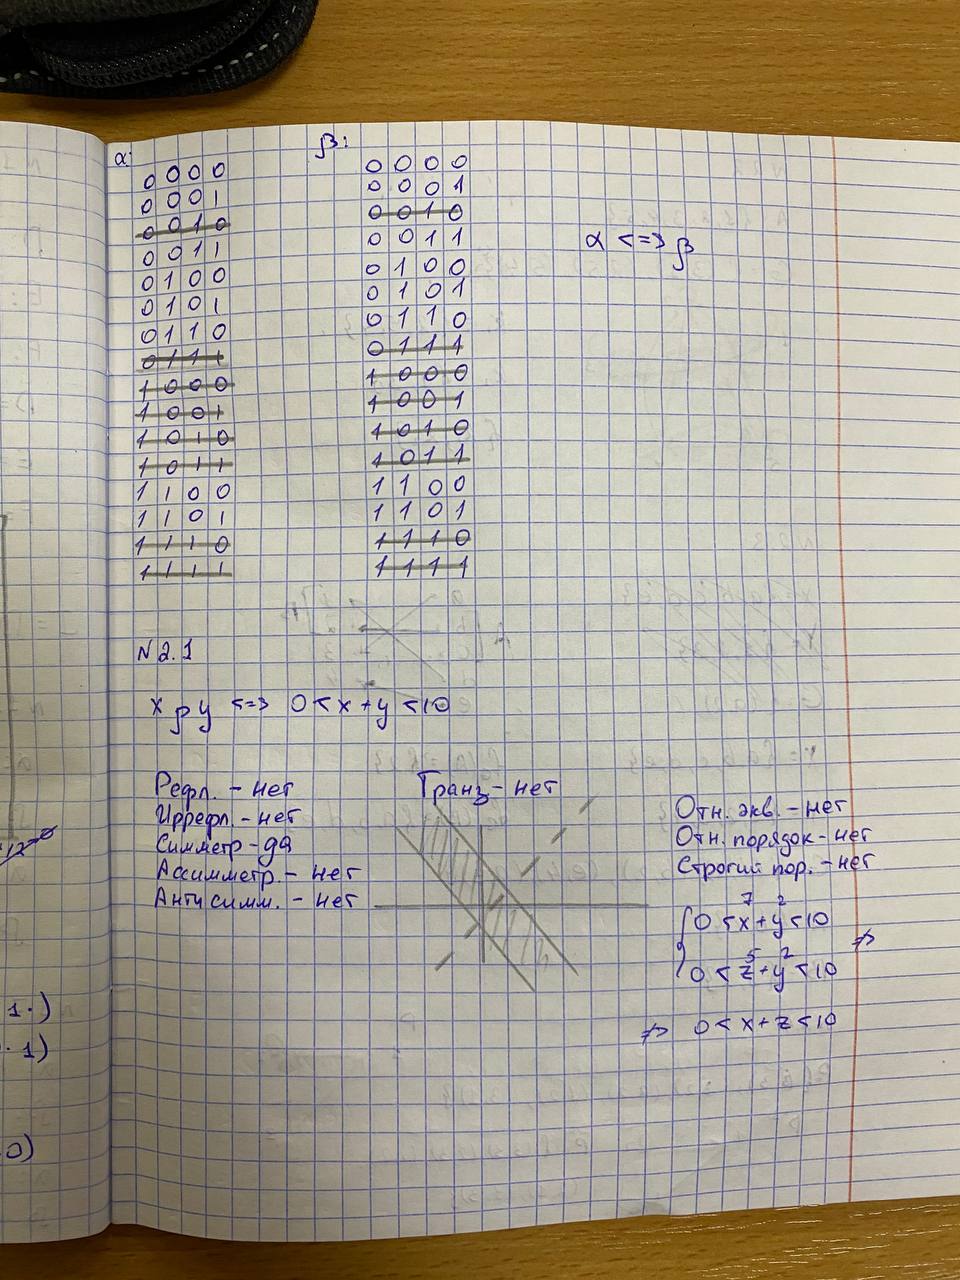 α: β:
0000 0000
0001 0001
0010 0010
0011 0011
0100 0100
0101 0101
0110 0110
0111 0111
1000 1000
1001 1001
1010 1010
1011 1011
1100 1100
1101 1101
1110 1110
1111 1111
α <=> β
N2.1
xρy <=> 0<x+y<10
Рефл. - нет
Иррефл. - нет
Симметр - да
Ассимметр. - нет
Антисимм. - нет
Транз - нет
Отн. экв. - нет
Отн. порядок - нет
Строгий пор. - нет
7 2
0<x+y<10
5 2
0<z+y<10
≠>
≠> 0<x+z<10
1·)
·1)
0)